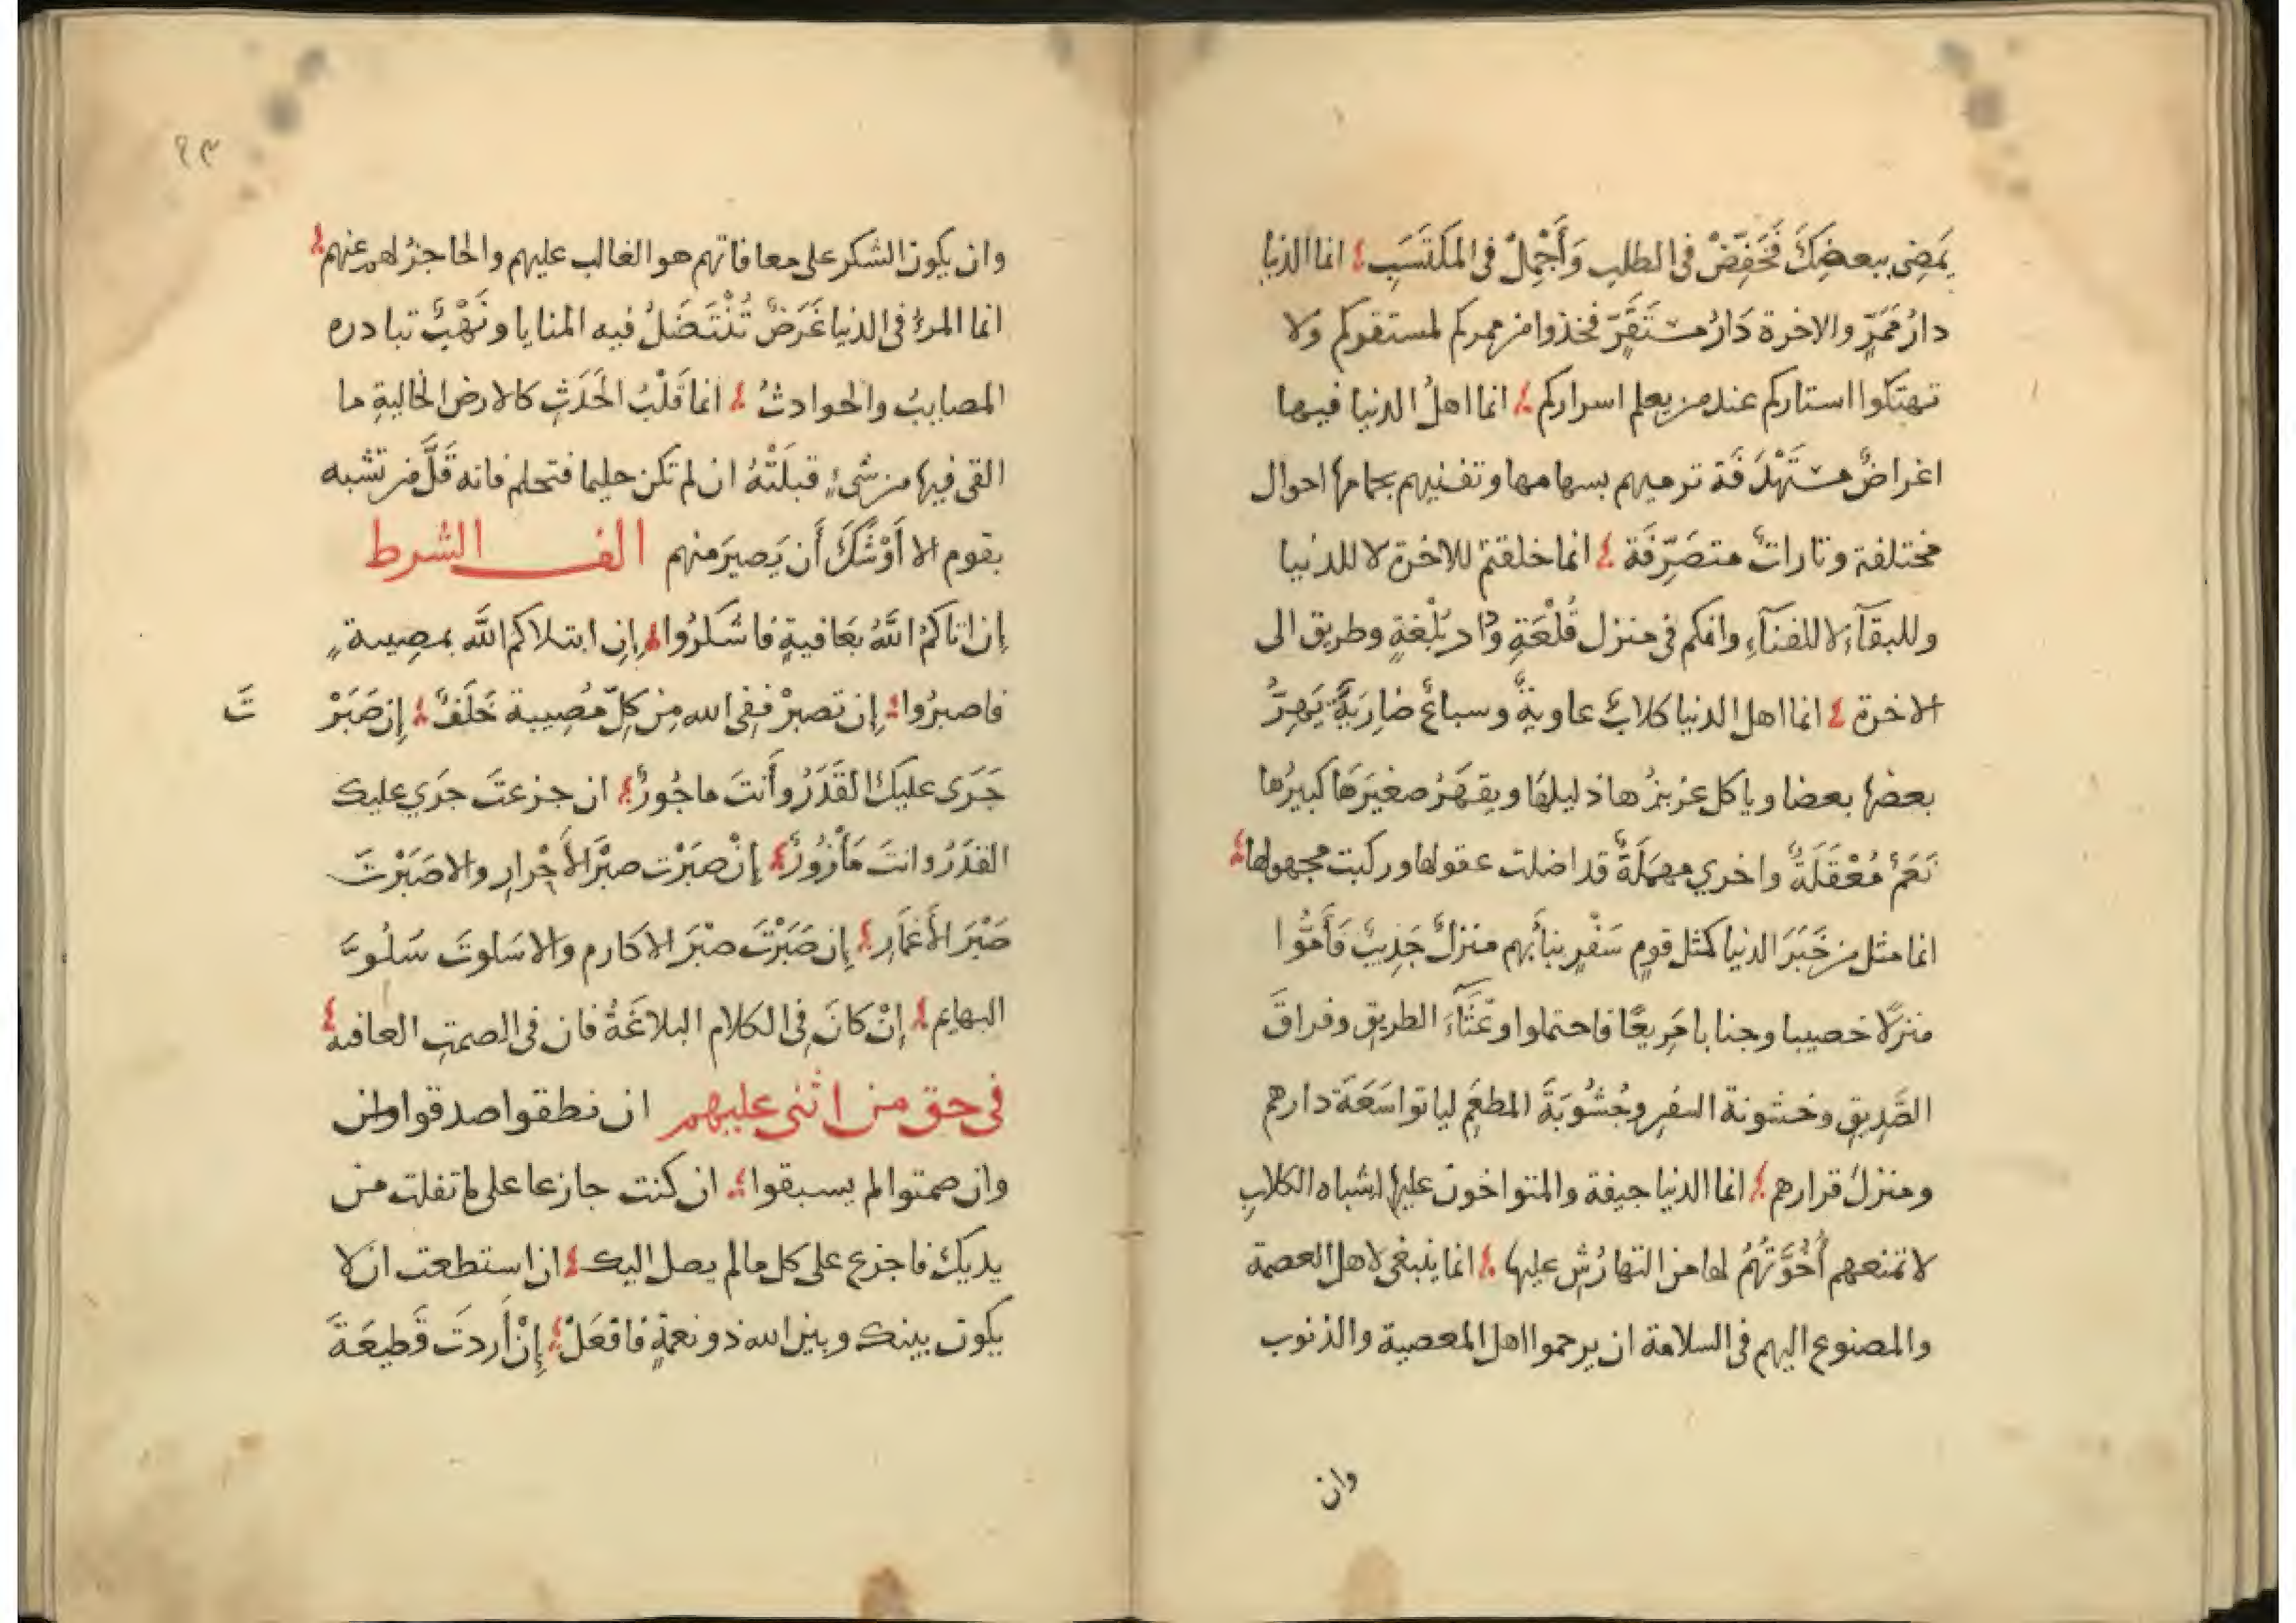 يَمضِى ببعضِكَ فَخَفِّضْ فى الطلبِ وَأَجْمِلْ فى المَكتَسَبِ انما الدنيا
دارُ مَمَرٍّ والاخرة دَارُ مستَقَرٍّ فخذوا من ممركم لمستقركم ولا
تهتكوا استاركم عند من يعلم اسراركم انما اهلُ الدنيا فيها
اغراضٌ مستَهْدَفَة ترميهم بسهامها وتفنيهم بحمامها احوال
مختلفة وتاراتٌ متصَرِّفَة انما خلقتم للاخرة لا للدنيا
وللبقآءِ لا للفنآءِ وانكم فى منزل قُلْعَةٍ ودار بُلْغةٍ وطريق الى
الاخرة انما اهل الدنيا كلابٌ عاويةٌ وسباعٌ ضارِيَةٌ يَهِرُّ
بعضها بعضا وياكل عزيزُها ذليلَها ويقهَرُ صغيرَها كبيرُها
نَعَمٌ مُعْقَلَةٌ واخري مهمَلَةٌ قد اضلت عقولها وركبت مجهولها
انما مثل من خَبَرَ الدنيا كمثل قومٍ سَفْرٍ نبأبهم منزلٌ جَذِيبٌ فَأَمُّوا
منزلًا خصيبا وجنابا مَرِيعًا فاحتملوا وعْثَآءَ الطريقِ وفراقَ
الصَّدِيقِ وخشونة السفرِ وجُشُوبَةَ المطعَمِ لياتوا سَعَةَ دارهم
ومنزلَ قرارهم انما الدنيا جيفة والمتواخون عليها اشباه الكلابِ
لا تمنعهم أُخُوَّتُهُمْ لها من التهارُشِ عليها انما ينبغى لاهل العصمة
والمصنوع اليهم فى السلامة ان يرحموا اهل المعصية والذنوب
وان
٢٣
وان يكون الشكر على معافاتهم هو الغالب عليهم والحاجزُ لهم عنهم
انما المرءُ فى الدنيا غَرَضٌ تُنْتَضَلُ فيه المنايا ونَهْبٌ تبادره
المصايبُ والحوادثُ انما قَلْبُ الحَدَثِ كالارض الخاليةِ ما
القى فيها من شىءٍ قبلَتْهُ ان لم تكن حليما فتحلم فانه قَلَّ من تشبه
بقوم الا أَوْشَكَ أَن يَصيرَ منهم الف الشرط
إن اتاكمُ اللَّهُ بعَافيةٍ فاشكرُوا إن ابتلاكم اللَّه بمصِيبة
فاصبرُوا إن تصبرْ ففِى الله مِن كلّ مُصِيبة خَلَفٌ إن صَبَرْ
تَ
جَرَى عليكَ القَدَرُ وأَنتَ ماجُورٌ ان جزعتَ جرَي عليك
القدَرُ وانتَ مَأْزُورٌ إنْ صَبَرْت صبْرَ الأَحْرارِ والا صَبَرْتَ
صَبْرَ الأَغمَارِ إن صَبَرْتَ صبْرَ الاكارم والا سَلوتَ سُلُوَّ
البهايم إنْ كانَ فى الكلامِ البلاغَةُ فان فى الصمتِ العافية
فى حق من اثنى عليهم ان نطقوا صدقوا وان
وان صمتوا لم يسبقوا ان كنت جازعا على ما تفلت من
يديكَ فاجزع على كل مالم يصل اليك ان استطعت ان لا
يكون بينك وبين الله ذو نعمةٍ فافعَلْ إنْ أَردتَ قَطيعَةَ